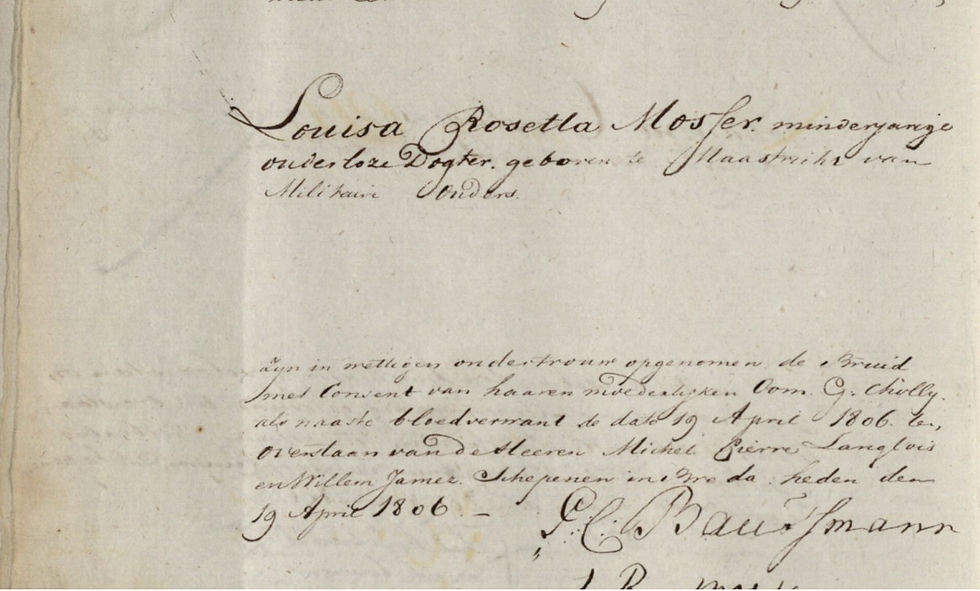 Louisa Rosetta Mosser. minderjarige
ouderloze Dogter. geboren te Maastricht van
Militaire Ouders.
zyn in wettigen ondertrouw opgenomen de Bruid
met Consent van haaren moederlyken Oom. G: Cholly.
als naaste bloedverwant de dato 19 April 1806. ten,
overstaan van de Heeren Michel Pierre Langlois
en Willem Jamez. Schepenen in Breda. heden den
19 April 1806 –